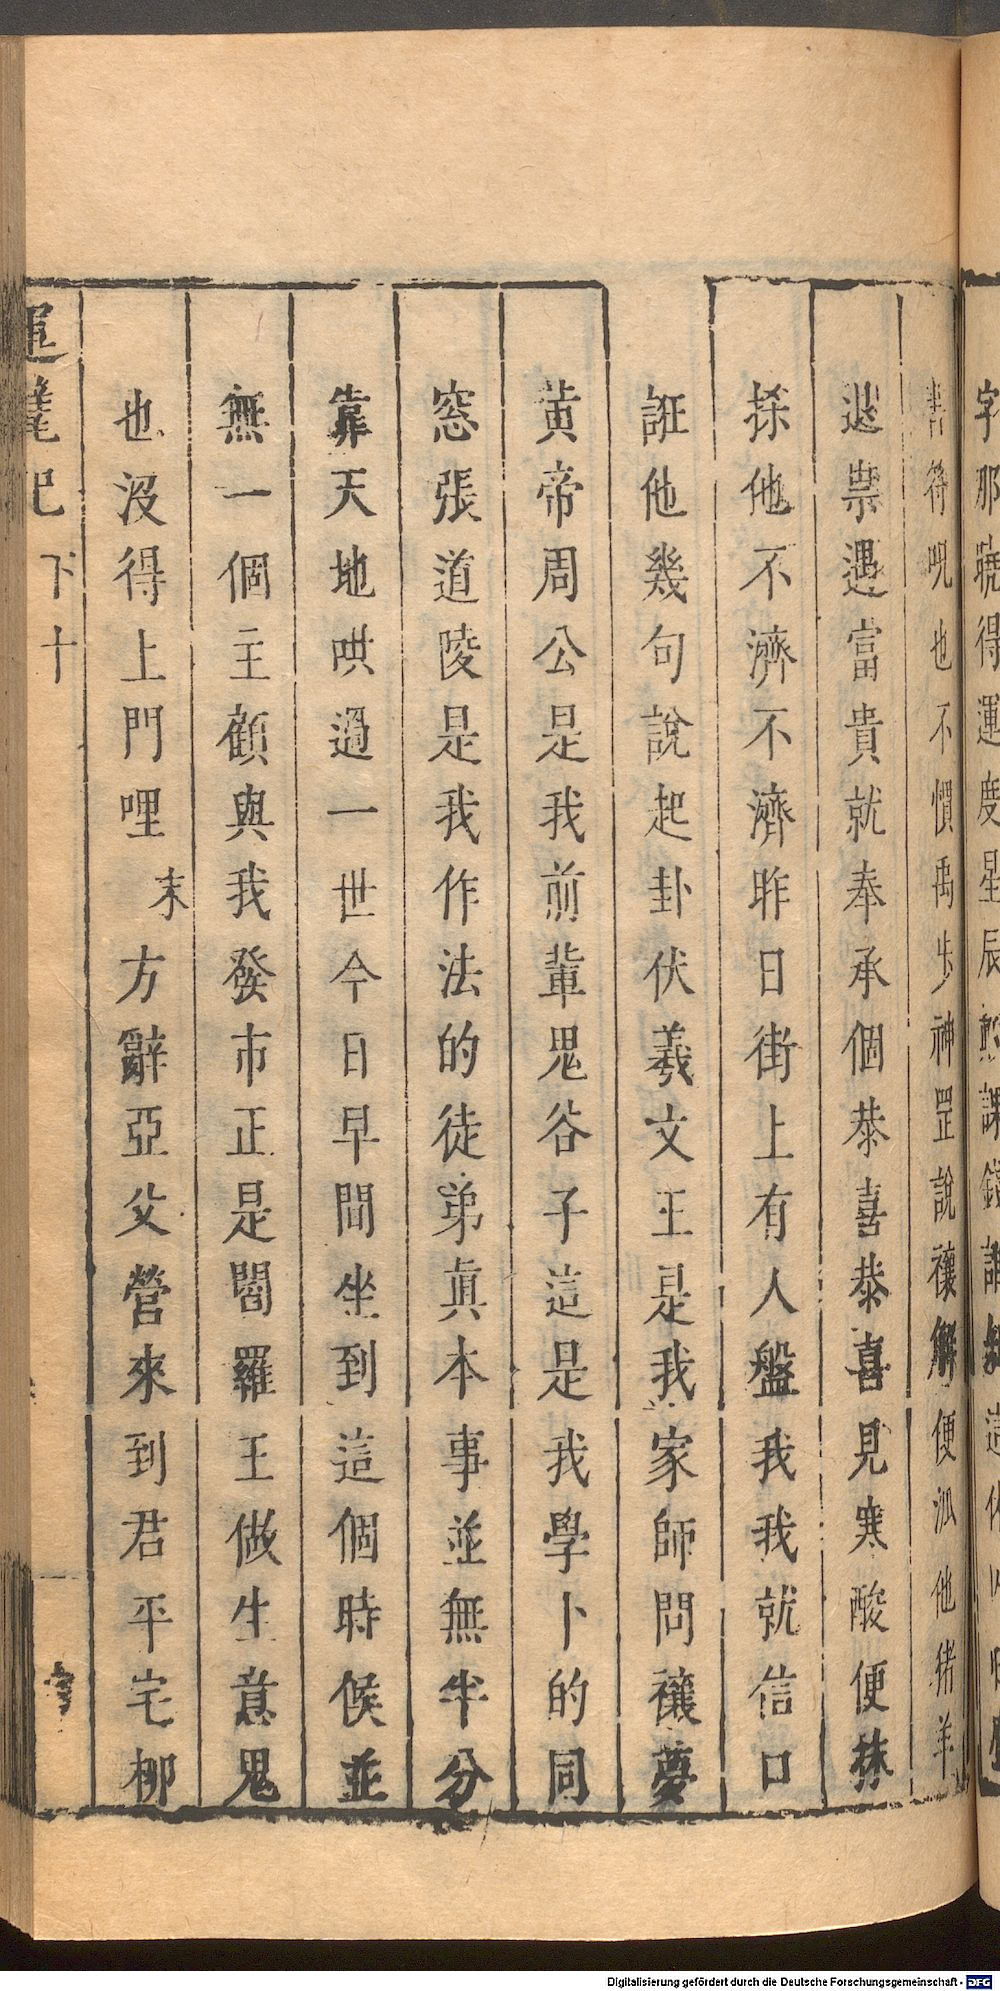 字那曉得運度星辰
書符呪也不慣禹步神罡說禳解便泒他猪羊
退祟遇富貴就奉承個恭喜恭喜見寒酸便
捺他不濟不濟昨日街上有人盤我我就信口
誑他幾句說起卦伏羲文王是我家師問禳夢
黄帝周公是我前輩鬼谷子這是我學卜的同
窓張道陵是我作法的徒弟眞本事並無半分
靠天地哄過一世今日早間坐到這個時候並
無一個主顧與我發市正是閻羅王做生意鬼
也沒得上門哩末方辭亞父營來到君平宅柳
運甓記 下 十
Digitalisierung gefördert durch die Deutsche Forschungsgemeinschaft - DFG